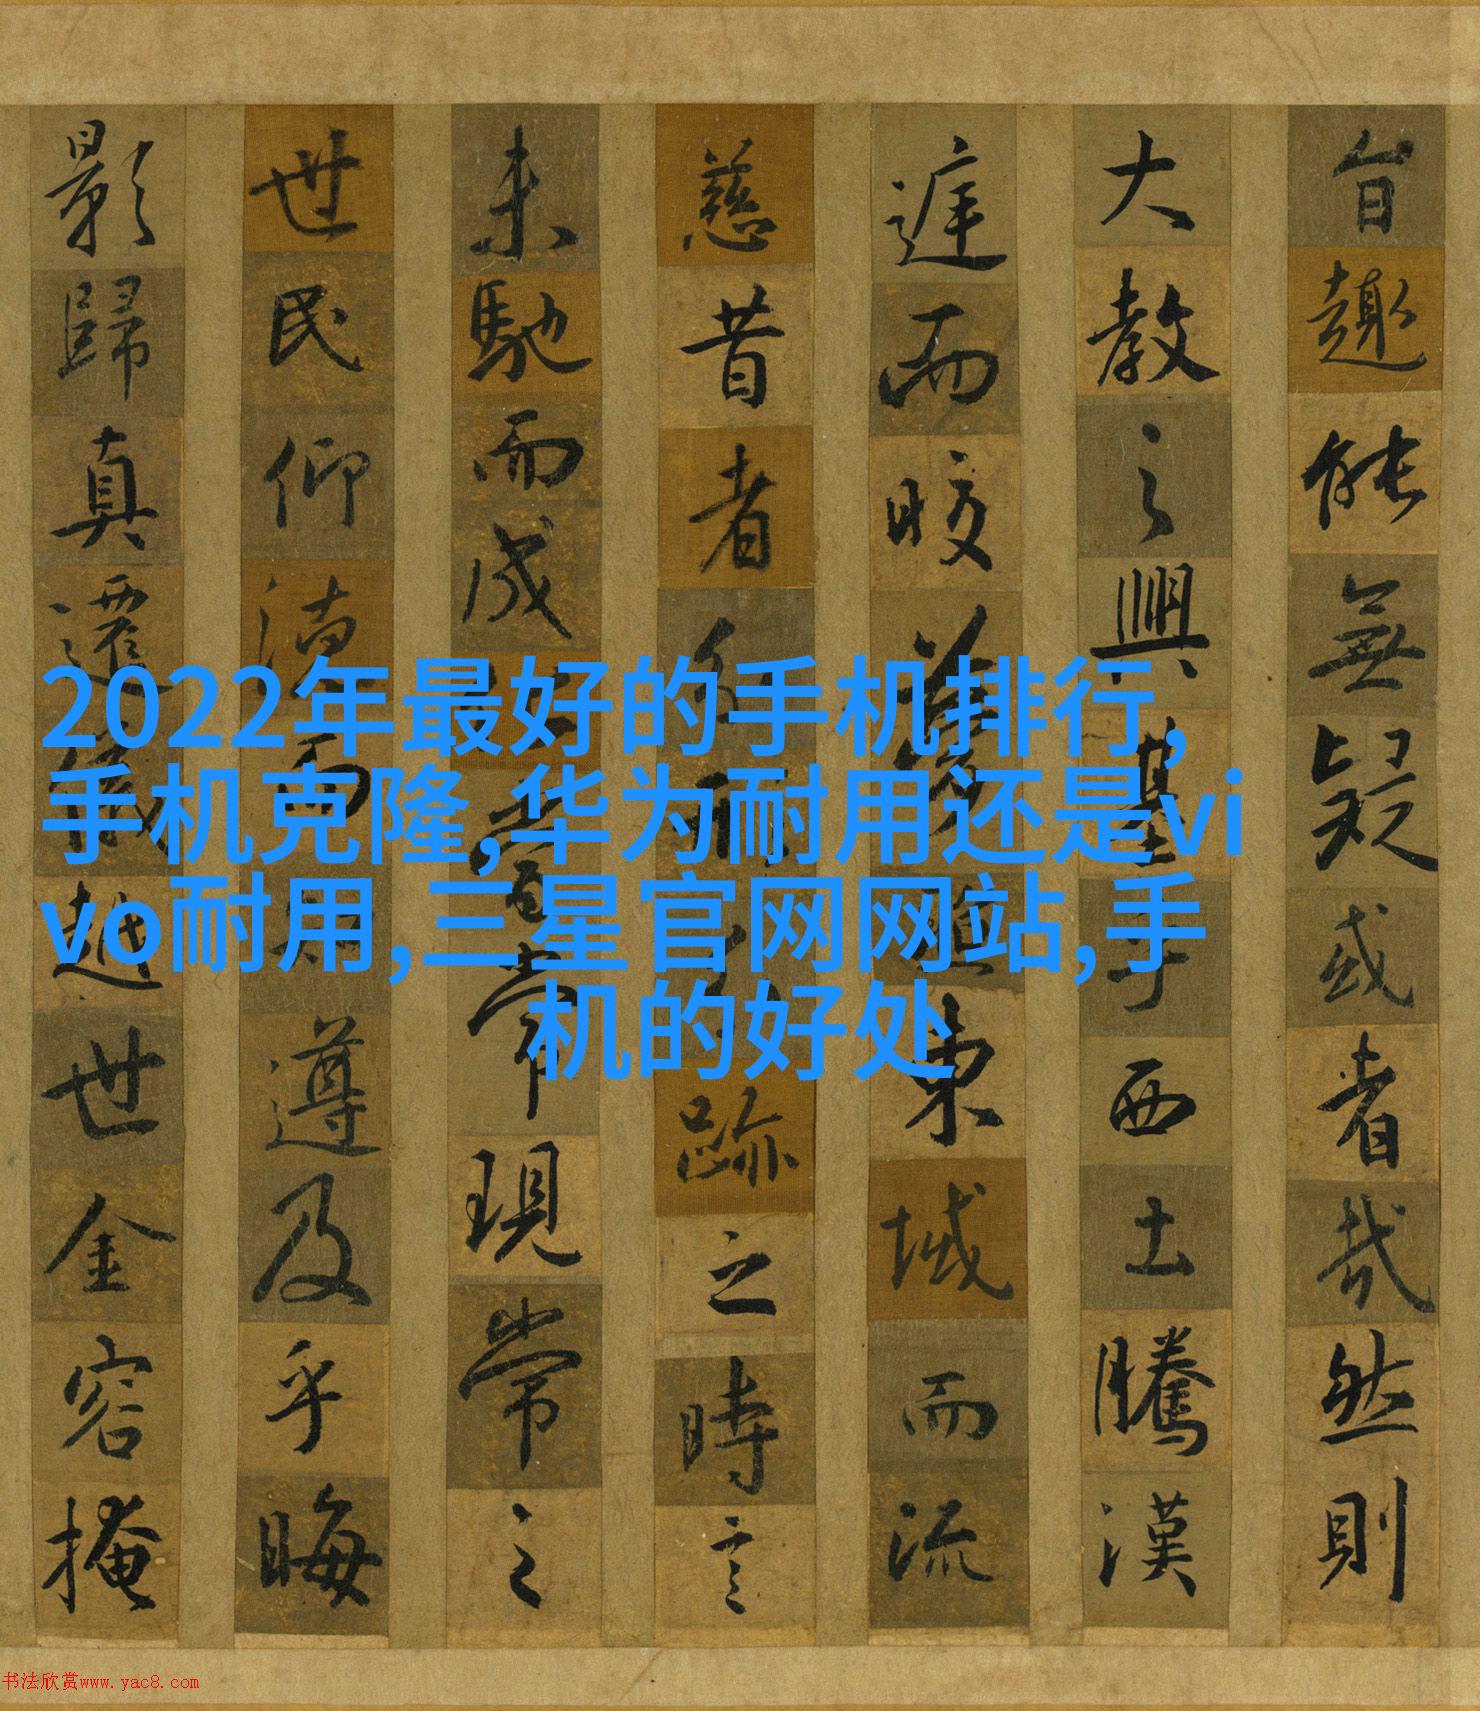 旨趣能無疑或者哉然則
大教之興基乎西土騰漢
庭而皎夢照東域而流
慈昔者分形分跡之時言
未馳而成化當常現常之
世民仰德而知遵及乎晦
影歸真遷儀越世金容掩
2022年最好的手机排行,
手机克隆,华为耐用还是vi
vo耐用,三星官网网站,手
机的好处
书法欣赏www.yac8.com